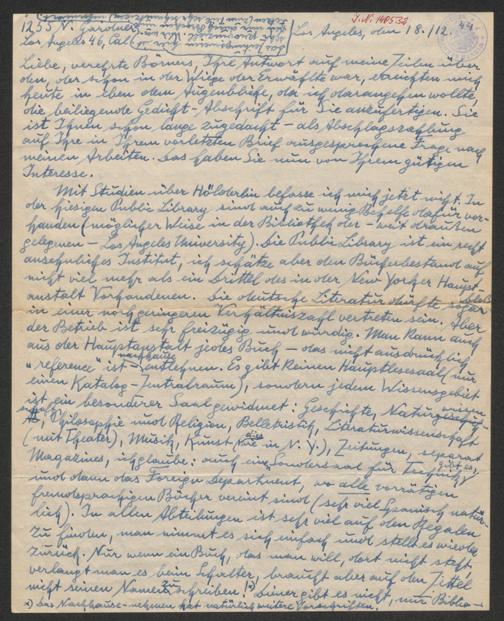 J.N. 148538
44
1255 N. Gardner
Los Angeles 46, Cal.
Los Angeles, den 18./12.
Liebe, verehrte Börners, Ihre Antwort auf meine Zeilen über
den, der schon in der Wiege der Erwählte war, erreichten mich
heute in eben dem Augenblicke, da ich darangehen wollte
die beiliegende Gedicht-Abschrift für Sie anzufertigen. Sie
ist Ihnen schon lange zugedacht – als Abschlagszahlung
auf Ihre in Ihrem vorletzten Brief ausgesprochene Frage nach
meinen Arbeiten. Das haben Sie nun von Ihrem gütigen
Interesse.
Mit Studien über Hölderlin befasse ich mich jetzt nicht. In
der hiesigen Public Library sind auch zu wenig Behelfe dafür vor-
handen (möglicher Weise in der Bibliothek der – weit draußen
gelegenen – Los Angeles University). Die Public Library ist ein recht
ansehnliches Institut, ich schätze aber den Bücherbestand auf
nicht viel mehr als ein Drittel des in der New Yorker Haupt-
anstalt Vorhandenen. Die deutsche Literatur dürfte sogar
in einer noch geringeren Verhältniszahl vertreten sein. Aber
der Betrieb ist sehr freizügig und würdig. Man kann auch
aus der Hauptanstalt jedes Buch – das nicht ausdrücklich
„reference" ist – nachhause entlehnen. Es gibt keinen Hauptlesesaal (nur
einen Katalog-Zentralraum), sondern jedem Wissensgebiet
ist ein besonderer Saal gewidmet: Geschichte, Naturwissen
schaft, Philosophie und Religion, Belletristik, Literaturwissenschaft
(mit Theater), Musik, Kunst (wie in N.Y.), Zeitungen, separat
Magazines, ich glaube: auch ein Sondersaal für Technik gibt es,
und dann das Foreign Department, wo alle vorrätigen
fremdsprachigen Bücher vereint sind (sehr viel Spanisch natür-
lich). In allen Abteilungen ist sehr viel auf den Regalen
zu finden, man nimmt es sich einfach und stellt es wieder
zurück. Nur wenn ein Buch, das man will, dort nicht steht,
verlangt man es beim Schalter, braucht aber auf den Zettel
nicht seinen Namen zu schreiben! x) Diener gibt es nicht, nur Biblio-
x) Das Nachhause-nehmen hat natürlich weitere Vorschriften.